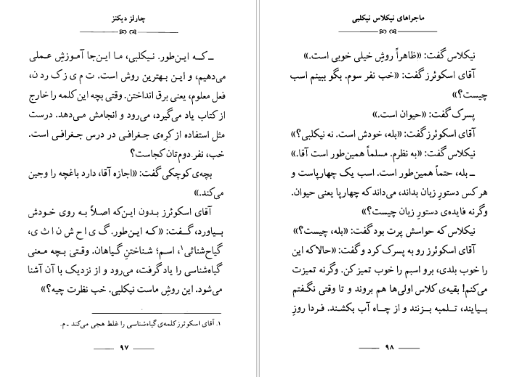 چارلز دیکنز
ــ که این‌طور. نیکلبی، ما این‌جا آموزشِ عملی
می‌دهیم، و این بهترین روش است. ت م ی ز ک ر د ن،
فعل معلوم، یعنی برق انداختن. وقتی بچه این کلمه را خارج
از کتاب یاد می‌گیرد، می‌رود و انجامش می‌دهد. درست
مثل استفاده از کره‌ی جغرافی در درس جغرافی است.
خب، نفر دوم‌تان کجاست؟
بچه‌ی کوچکی گفت: «اجازه آقا، دارد باغچه را وجین
می‌کند.»
آقای اسکوئرز بدون این‌که اصلاً به روی خودش
بیاورد، گفت: «که این‌طور. گ ی ا ح ش ن ا ث ی،
گیاح‌شناثی۱، اسم؛ شناختنِ گیاهان. وقتی بچه معنی
گیاه‌شناسی را یاد گرفت، می‌رود و از نزدیک با آن آشنا
می‌شود. این روشِ ماست نیکلبی. خب نظرت چیه؟»
۱. آقای اسکوئرز کلمه‌ی گیاه‌شناسی را غلط هجی می‌کند ـ م.
۹۷
ماجراهای نیکلاس نیکلبی
نیکلاس گفت: «ظاهراً روشِ خیلی خوبی است.»
آقای اسکوئرز گفت: «خب نفر سوم. بگو ببینم اسب
چیست؟»
پسرک گفت: «حیوان است.»
آقای اسکوئرز گفت: «بله، خودش است. نه نیکلبی؟»
نیکلاس گفت: «به نظرم. مسلماً همین‌طور است آقا.»
ــ بله، حتماً همین‌طور است. اسب یک چهارپاست و
هر کس دستورِ زبان بداند، می‌داند که چهارپا یعنی حیوان.
وگرنه فایده‌ی دستورِ زبان چیست؟»
نیکلاس که حواسش پرت بود گفت: «بله، چیست؟»
آقای اسکوئرز رو به پسرک کرد و گفت: «حالا که این
را خوب بلدی، برو اسبم را خوب تمیز کن. وگرنه تمیزت
می‌کنم! بقیه‌ی کلاس اولی‌ها هم بروند و تا وقتی نگفتم
بیایند، تلمبه بزنند و از چاه آب بکشند. فردا روزِ
۹۸